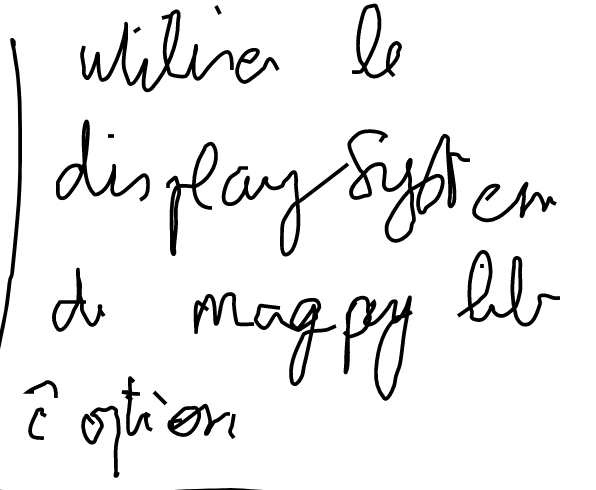 utiliser le
displaySystem
de magpylib
option